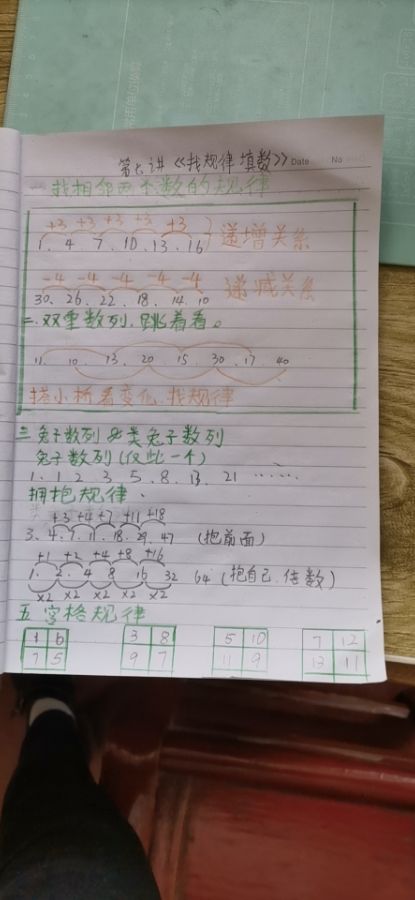 第七讲《找规律填数》 Date No
一找相邻两个数的规律
+3 +3 +3 +3 +3
1. 4 7. 10. 13. 16 } 递增关系
-4 -4 -4 -4 -4
30. 26. 22. 18. 14. 10 递减关系
二、双重数列,跳着看。
11. 10. 13. 20. 15. 30. 17. 40
搭小桥看变化,找规律
三兔子数列&类兔子数列
兔子数列(仅此一个)
1. 1 2 3 5. 8. 13. 21 ……
拥抱规律、
+3 +4 +7 +11 +18
3. 4. 7. 11. 18. 29. 47 (抱前面)
+1 +2 +4 +8 +16
1. 2. 4 8 16 32 64 (抱自己.倍数)
×2 ×2 ×2 ×2 ×2
五宫格规律
1 6 3 8 5 10 7 12
7 5 9 7 11 9 13 11